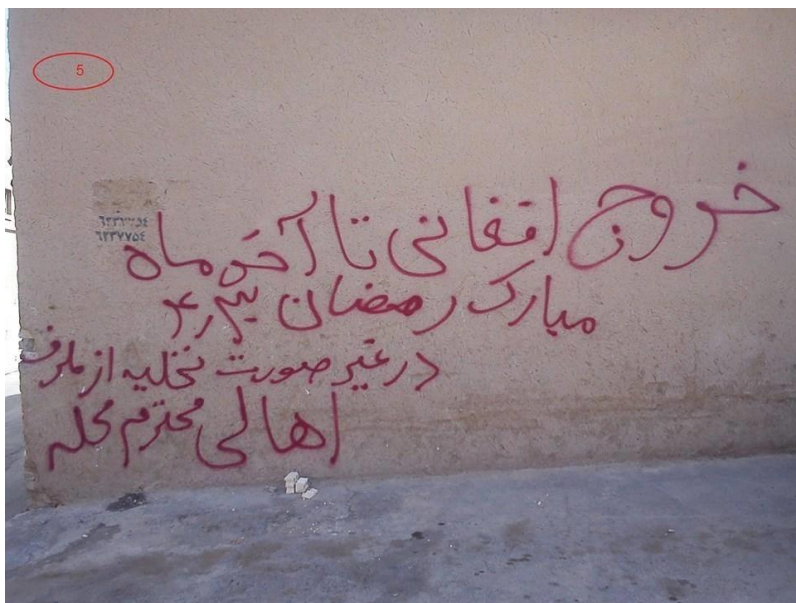 5
٦٢٣٧٧٥٤
خروج افغانی تا آخر ماه
مبارک رمضان
در غیر صورت تخلیه از طرف
اهالی محترم محله